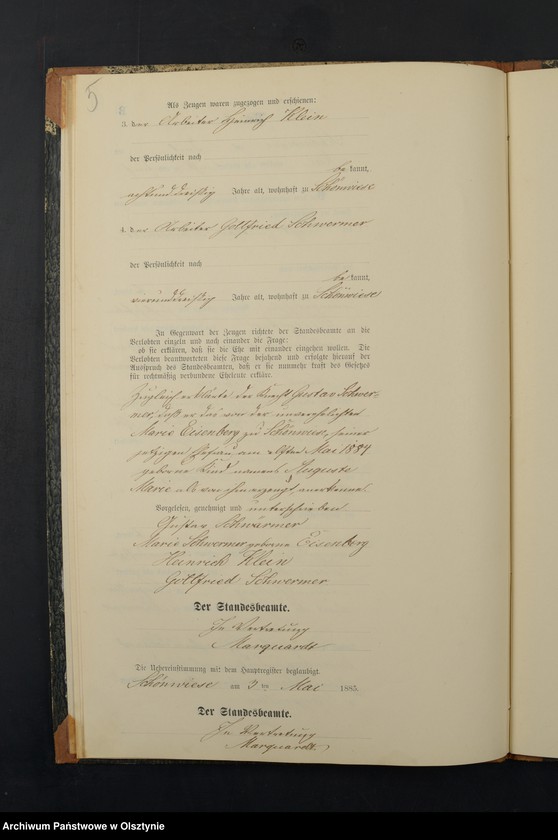 5
Als Zeugen waren zugezogen und erschienen:
3. der Arbeiter Heinrich Klein
der Persönlichkeit nach
be kannt,
achtunddreißig Jahre alt, wohnhaft zu Schönwiese
4. der Arbeiter Gottfried Schwermer
der Persönlichkeit nach
be kannt,
vierunddreißig Jahre alt, wohnhaft zu Schönwiese
In Gegenwart der Zeugen richtete der Standesbeamte an die
Verlobten einzeln und nach einander die Frage:
ob sie erklären, daß sie die Ehe mit einander eingehen wollen. Die
Verlobten beantworteten diese Frage bejahend und erfolgte hierauf der
Ausspruch des Standesbeamten, daß er sie nunmehr kraft des Gesetzes
für rechtmäßig verbundene Eheleute erkläre.
Zugleich erklärte der Knecht Gustav Schwer-
mer, daß er das von der unverehelichten
Marie Eisenberg zu Schönwiese, seiner
jetzigen Ehefrau am elften Mai 1884
geborne Kind namens Auguste
Marie als von ihm erzeugt anerkenne.
Vorgelesen, genehmigt und unterschrieben
Gustav Schwärmer
Marie Schwermer geborne Eisenberg
Heinrich Klein
Gottfried Schwermer
Der Standesbeamte.
In Vertretung
Marquardt
Die Uebereinstimmung mit dem Hauptregister beglaubigt.
Schönwiese am 3 ten Mai 1885.
Der Standesbeamte.
In Vertretung
Marquardt
Archiwum Państwowe w Olsztynie